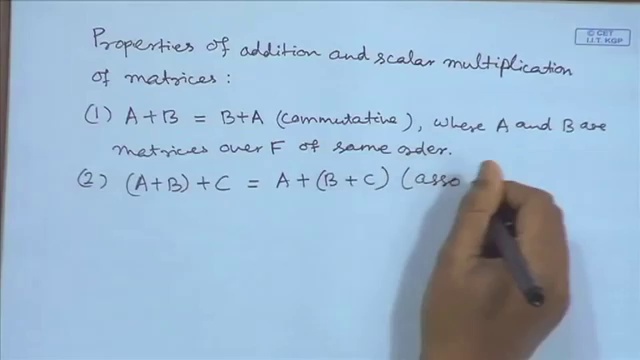 © CET
I.I.T. KGP
Properties of addition and scalar multiplication
of matrices :
(1) A+B = B+A (commutative), where A and B are
matrices over F of same order.
(2) (A+B)+C = A+(B+C) (asso